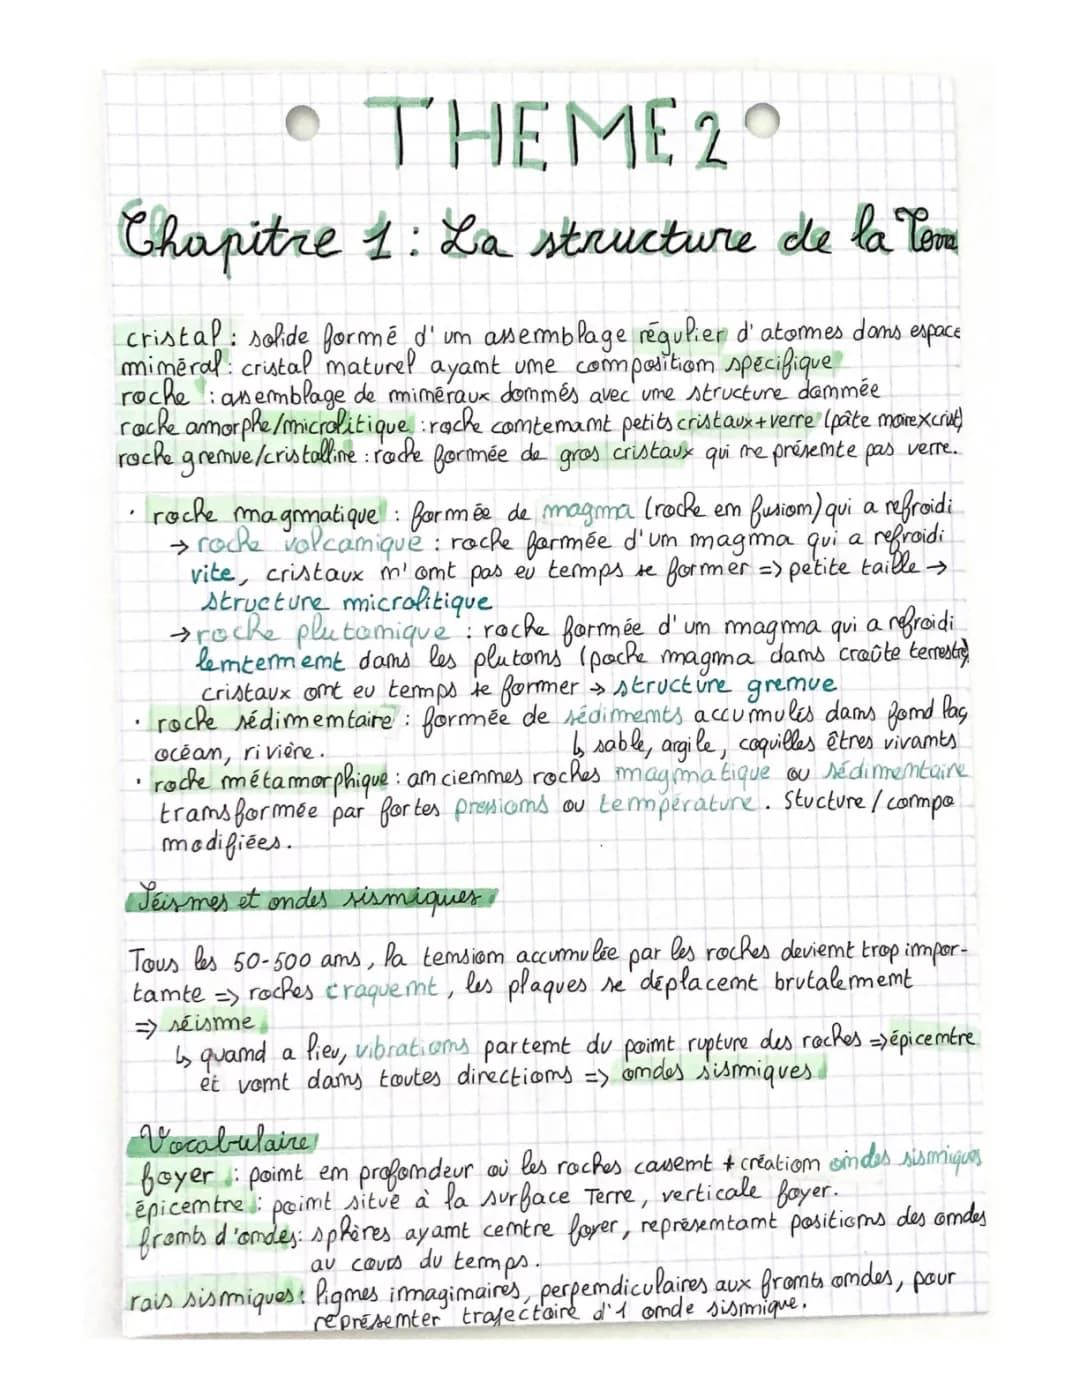 THEME 2
Chapitre 1 : La structure de la Terre
cristal : solide formé d'un assemblage régulier d'atomes dans espace
minéral : cristal naturel ayant une composition spécifique
roche : assemblage de minéraux donnés avec une structure donnée
roche amorphe/microlitique : roche contenant petits cristaux + verre (pâte
roche grenue/cristalline : roche formée de gros cristaux qui ne présente pas verre.
· roche magmatique : formée de magma (roche en fusion) qui a refroidi
→ roche volcanique : roche formée d'un magma qui a refroidi
vite, cristaux n'ont pas eu temps se former => petite taille →
structure microlitique
→ roche plutonique : roche formée d'un magma qui a refroidi
lentement dans les plutons (poche magma dans croûte terrestre)
cristaux ont eu temps te former → structure grenue
· roche sédimentaire : formée de sédiments accumulés dans fond lac,
océan, rivière. ↳ sable, argile, coquilles êtres vivants
· roche métamorphique : anciennes roches magmatique ou sédimentaire
transformée par fortes pressions ou température. Stucture / compo
modifiées.
Séismes et ondes sismiques
Tous les 50-500 ans, la tension accumulée par les roches devient trop impor-
tante => roches craquent, les plaques se déplacent brutalement
=> séisme
↳ quand a lieu, vibrations partent du point rupture des roches => épicentre
et vont dans toutes directions => ondes sismiques
Vocabulaire
foyer : point en profondeur où les roches cassent + création ondes sismiques
épicentre : point situé à la surface Terre, verticale foyer.
fronts d'ondes : sphères ayant centre foyer, représentant positions des ondes
au cours du temps.
rais sismiques : lignes imaginaires, perpendiculaires aux fronts ondes, pour
représenter trajectoire d'1 onde sismique.